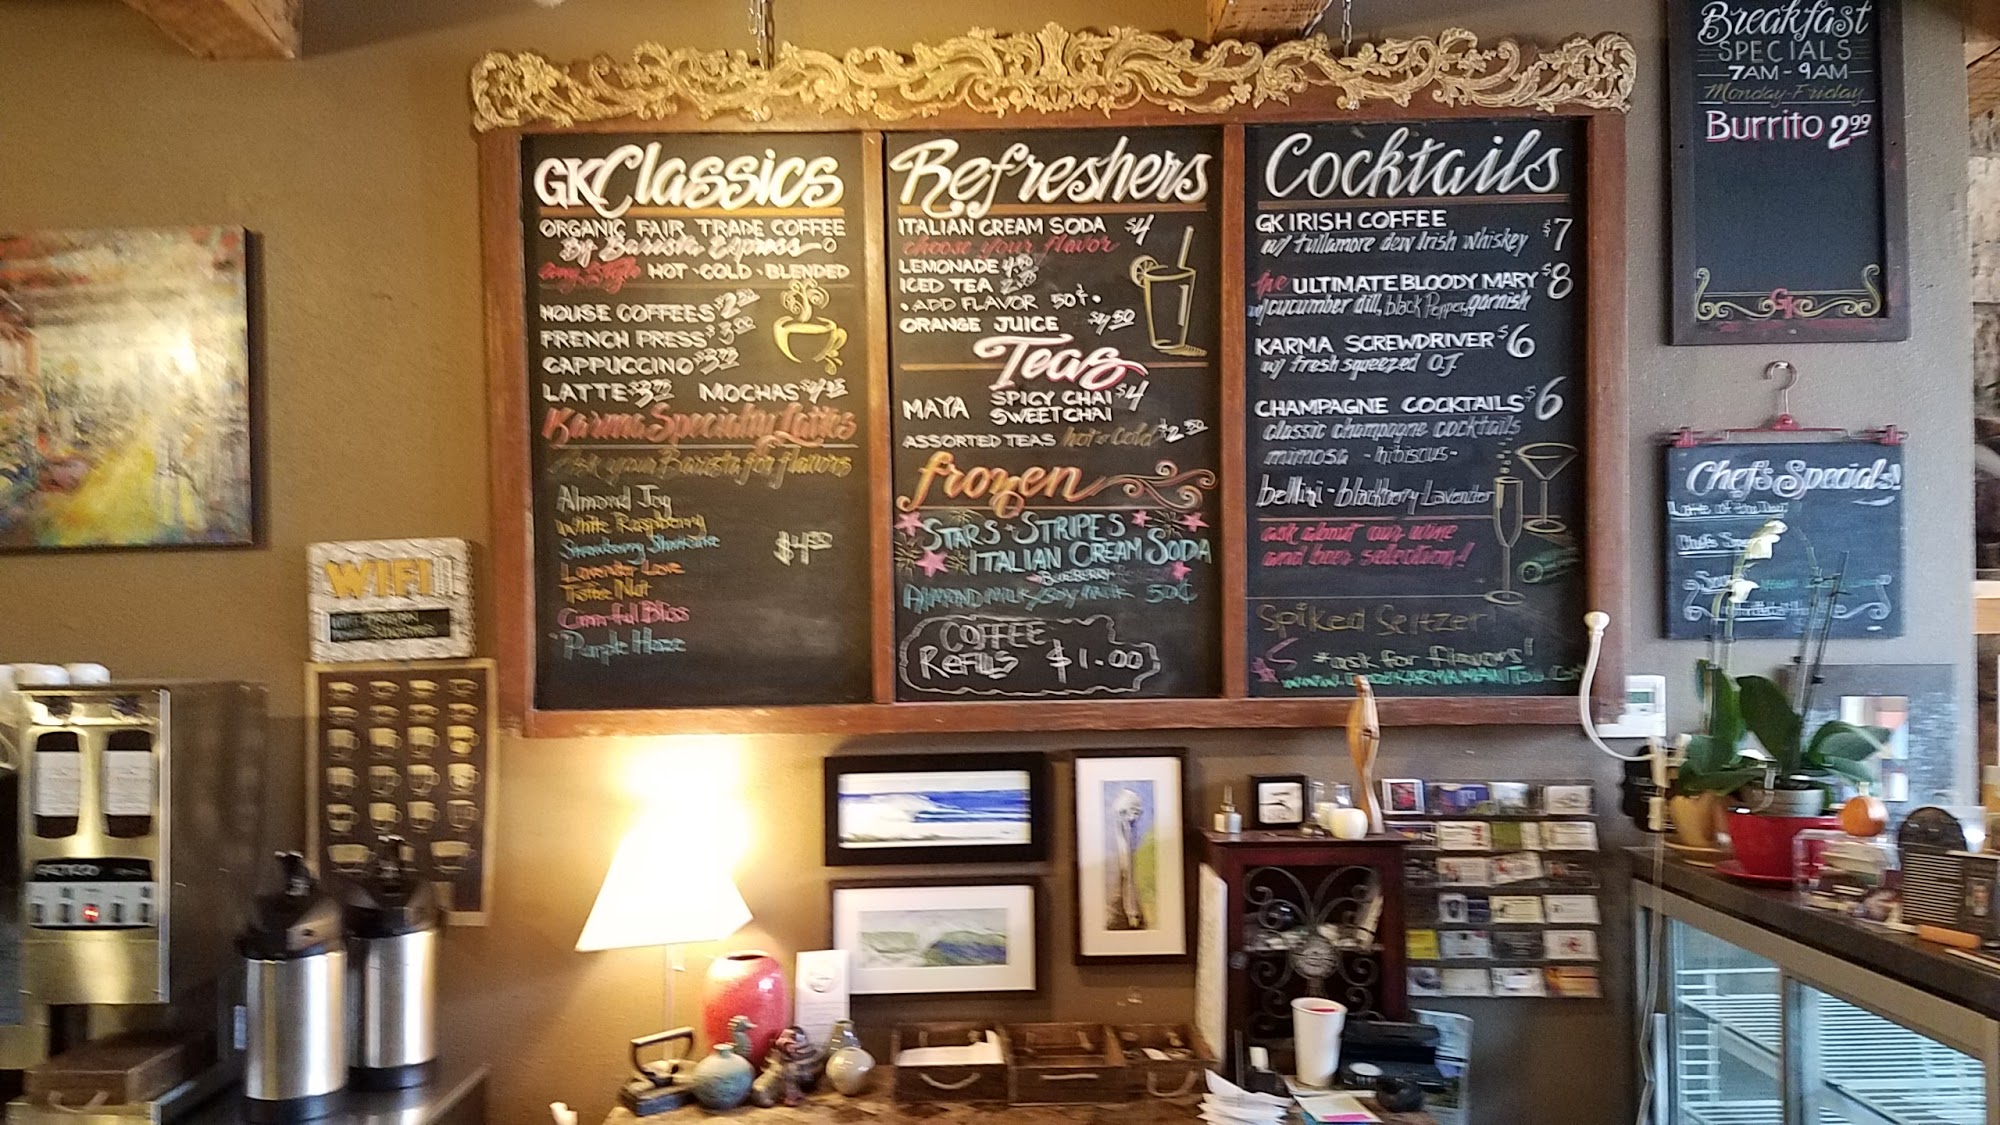 GK Classics
ORGANIC FAIR TRADE COFFEE
By Barista Express
any Style HOT · COLD · BLENDED
HOUSE COFFEES
FRENCH PRESS $3.00
CAPPUCCINO
LATTE MOCHAS
Karma Specialty Lattes
Ask your Barista for flavors
Almond Joy
White Raspberry
Strawberry Shortcake
Lavender Love
Toffee Nut
Cinn-ful Bliss
Purple Haze
Refreshers
ITALIAN CREAM SODA $4
choose your flavor
LEMONADE
ICED TEA
• ADD FLAVOR 50¢ •
ORANGE JUICE $4.50
Teas
MAYA SPICY CHAI $4
SWEET CHAI
ASSORTED TEAS hot or cold $2.50
frozen
STARS + STRIPES
ITALIAN CREAM SODA
BLUEBERRY
ALMOND MILK/SOY MILK 50¢
COFFEE
REFILLS $1.00
Cocktails
GK IRISH COFFEE $7
w/ tullamore dew Irish whiskey
the ULTIMATE BLOODY MARY $8
w/cucumber dill, black Pepper, garnish
KARMA SCREWDRIVER $6
w/ fresh squeezed O.J.
CHAMPAGNE COCKTAILS $6
classic champagne cocktails
mimosa - hibiscus -
bellini - blackberry Lavender
ask about our wine
and beer selection!
Spiked Seltzer
$5 *ask for flavors*
Breakfast
SPECIALS
7AM - 9AM
Monday-Friday
Burrito 2.99
GK
Chef's Specials!
Latte of the Day
WIFI